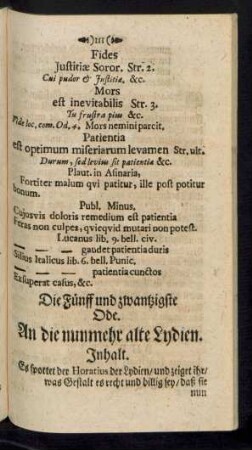 )111(
Fides
Justitiæ Soror. Str. 2.
Cui pudor & Justitiæ, &c.
Mors
est inevitabilis Str. 3.
Tu frustra pius &c.
Vide loc. com. Od. 4. Mors nemini parcit.
Patientia
est optimum miseriarum levamen Str. ult.
Durum, sed levius fit patientia &c.
Plaut. in Asinaria,
Fortiter malum qvi patitur, ille post potitur
bonum.
Publ. Minus.
Cujusvis doloris remedium est patientia
Feras non culpes, qvicqvid mutari non potest.
Lucanus lib. 9. bell. civ.
— — — — gaudet patientia duris
Silius Italicus lib. 6. bell. Punic.
— — — — patientia cunctos
Exsuperat casus, &c.
Die Fünff und zwantzigste
Ode.
An die nunmehr alte Lydien.
Inhalt.
Es spottet der Horatius der Lydien/ und zeiget ihr/
was Gestalt es recht und billig sey/ daß sie
nun